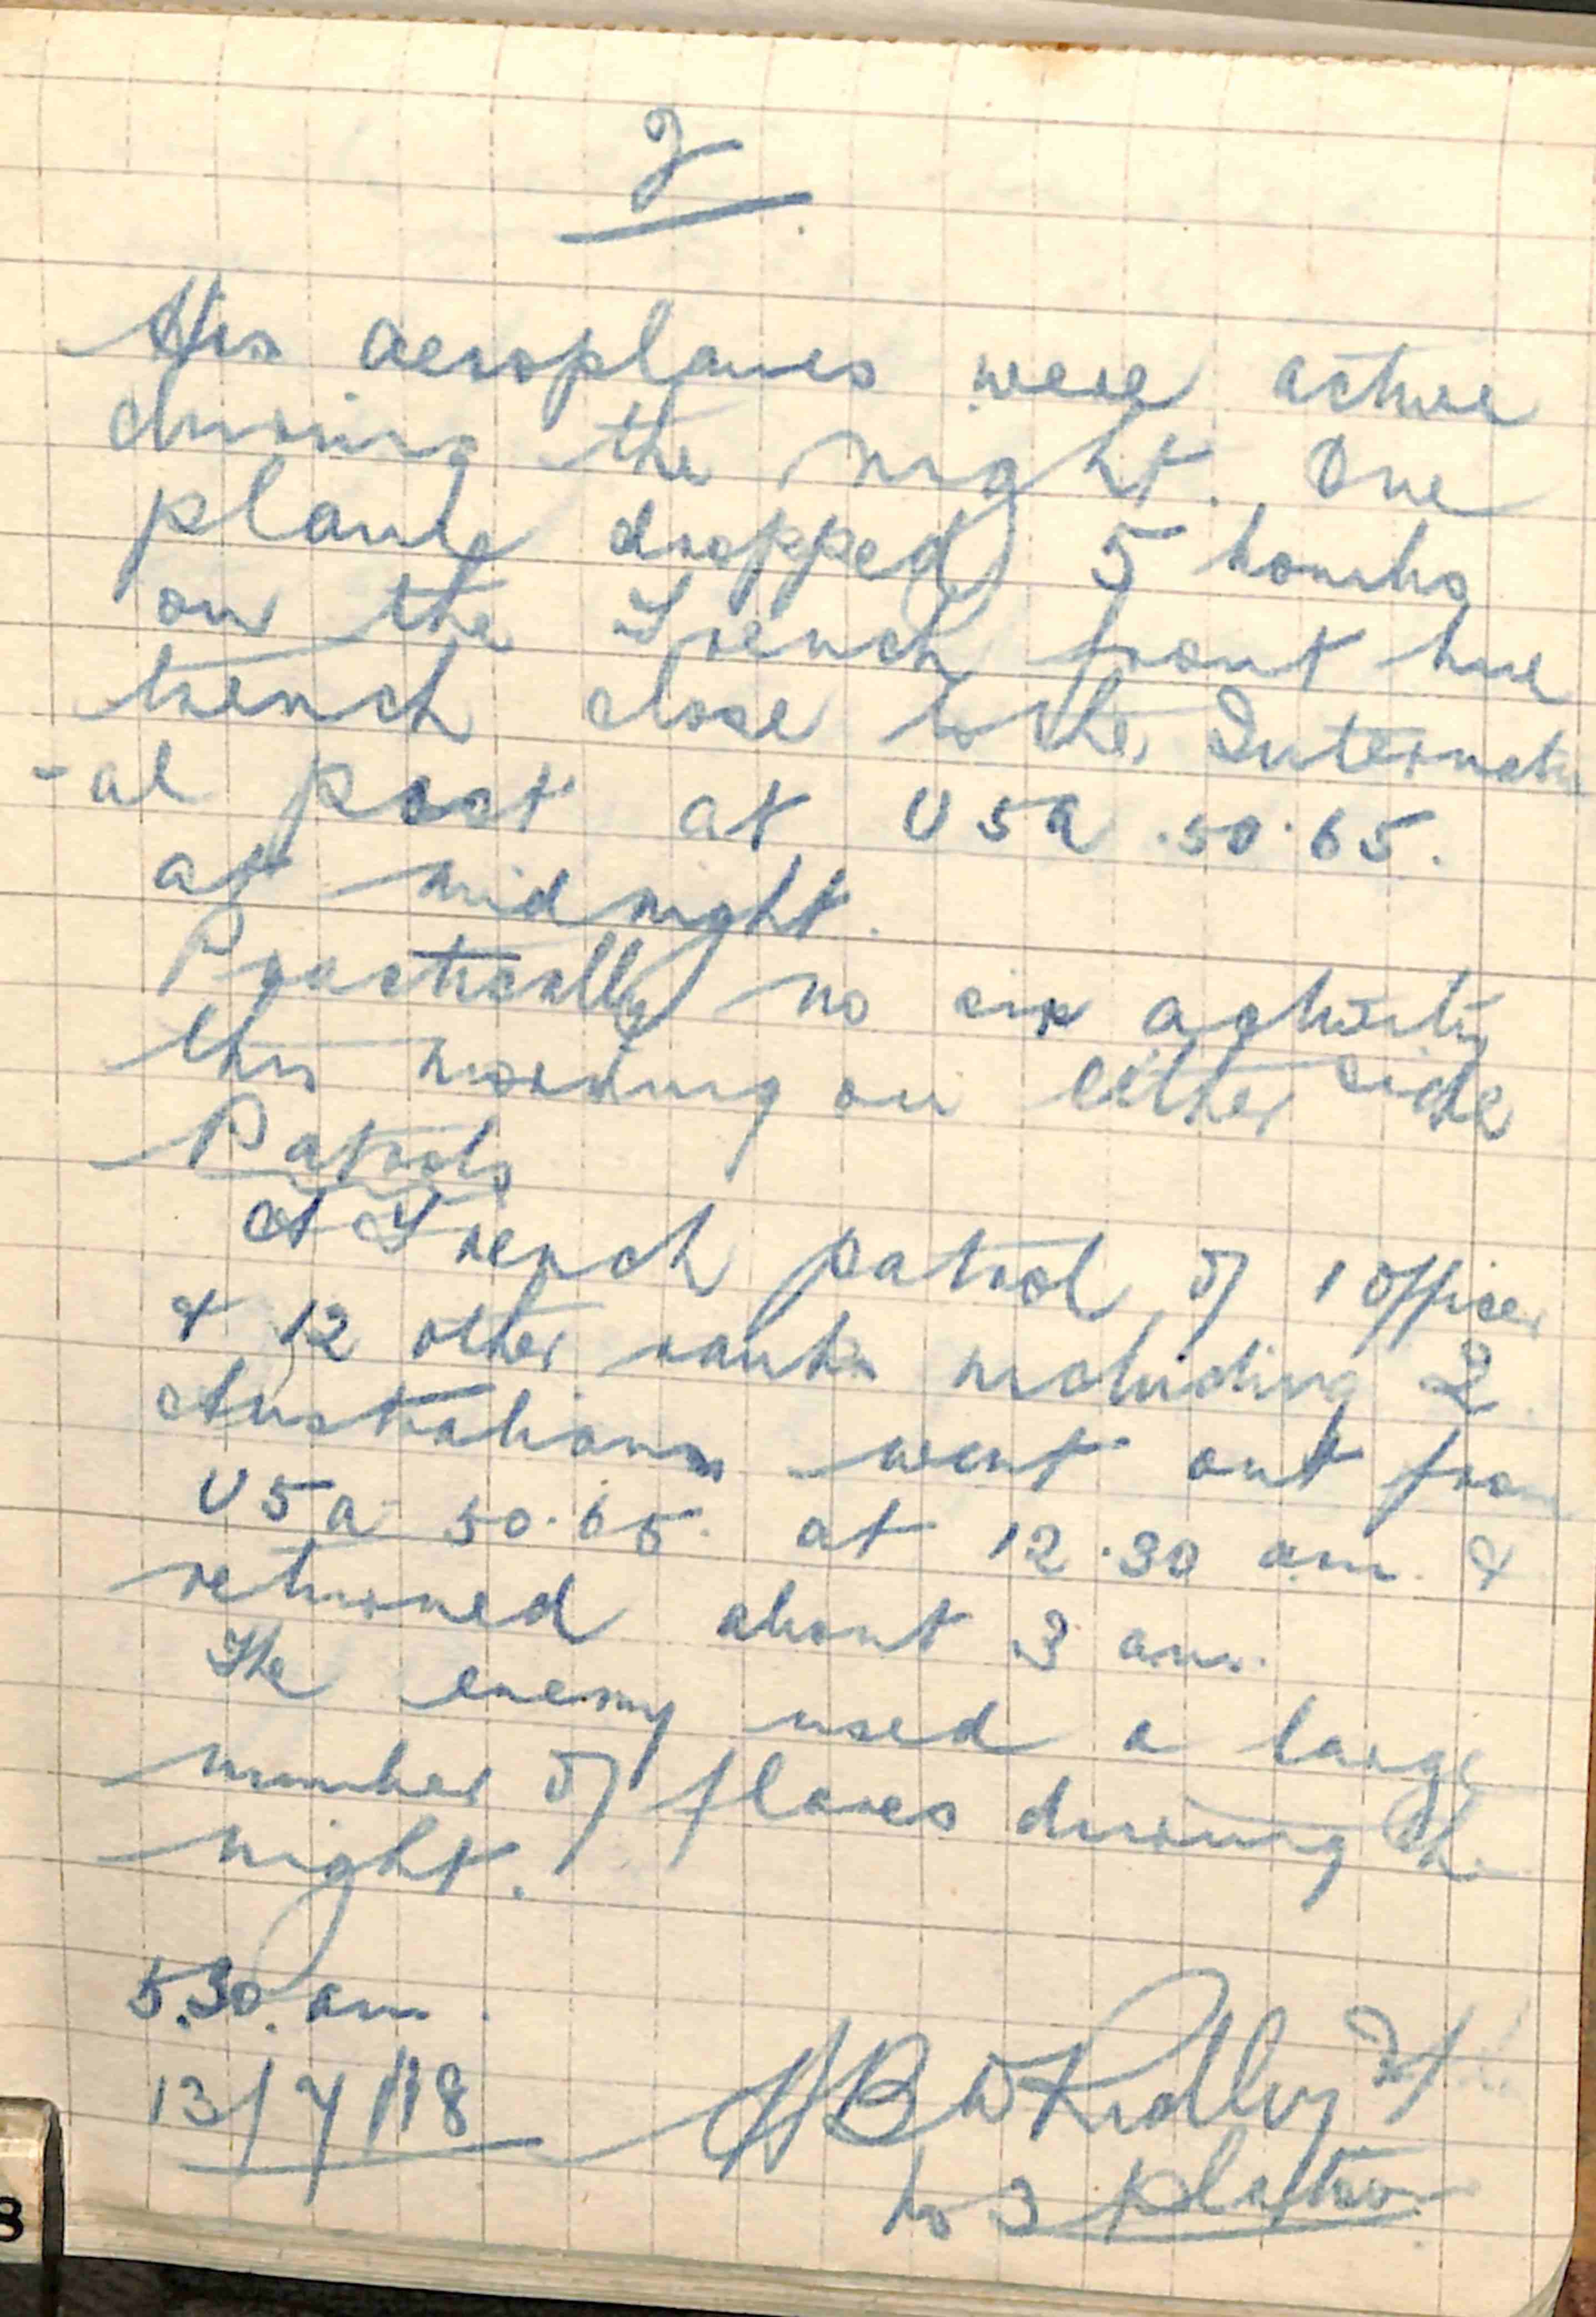 2
His aeroplanes were active
during the night. One
plane dropped 5 bombs
on the French front line
trench close to the Internation
-al post at U5a.50.65.
at midnight.
Practically no air activity
this morning on either side
Patrols
A French patrol of 1 officer
& 12 other ranks including 2
Australians went out from
U5a 50.65. at 12.30 am. &
returned about 3 am.
The enemy used a large
number of flares during the
night.
5.30. am.
13/7/18
HBW Ridley Lt
No 3 Platoon